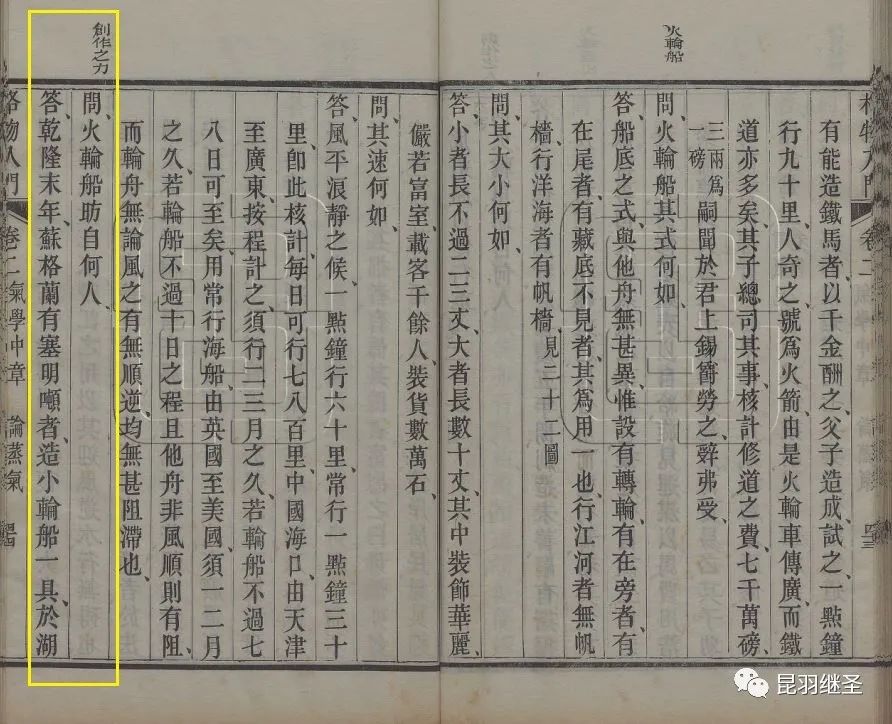 火輪船
格物入門 卷二
有能造鐵馬者以千金酬之父子造成試之一點鐘
行九十里人奇之號爲火箭由是火輪車傳廣而鐵
道亦多矣其子總司其事核計修道之費七千萬磅
三兩爲一磅嗣聞於君上錫酬勞之辭弗受
問火輪船其式何如
答船底之式與他舟無甚異惟設有轉輪有在旁者有
在尾者有藏底不見者其爲用一也行江河者無帆
檣行洋海者有帆檣見二十二圖
問其大小何如
答小者長不過二三丈大者長數十丈其中裝飾華麗
儼若富室載客千餘人裝貨數萬石
問其速何如
答風平浪靜之候一點鐘行六十里常行一點鐘三十
里卽此核計每日可行七八百里中國海口由天津
至廣東按程計之須行二三月之久若輪船不過七
八日可至矣用常行海船由英國至美國須一二月
之久若輪船不過十日之程且他舟非風順則有阻
而輪舟無論風之有無順逆均無甚阻滯也
創作之力
問火輪船昉自何人
答乾隆末年蘇格蘭有塞明噸者造小輪船一具於湖
格物入門 卷二氣學中章 論蒸氣 四
昆羽继圣